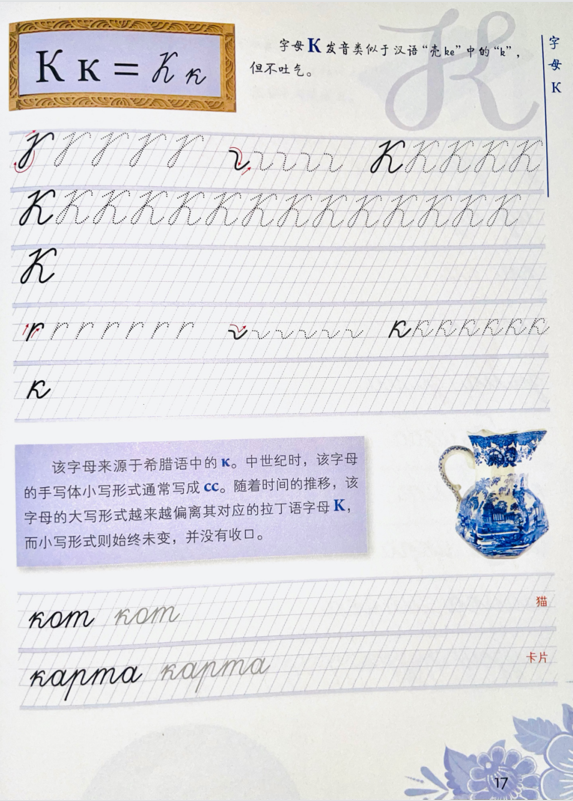 К к = К к
字母 К 发音类似于汉语“壳 ke”中的“k”，
但不吐气。
字母 К
К К К К К К
К К К К К К К К К К К К К К
К
к к к к к к к к
к
该字母来源于希腊语中的 κ。中世纪时，该字母
的手写体小写形式通常写成 cc。随着时间的推移，该
字母的大写形式越来越偏离其对应的拉丁语字母 K，
而小写形式则始终未变，并没有收口。
кот кот 猫
карта карта 卡片
17